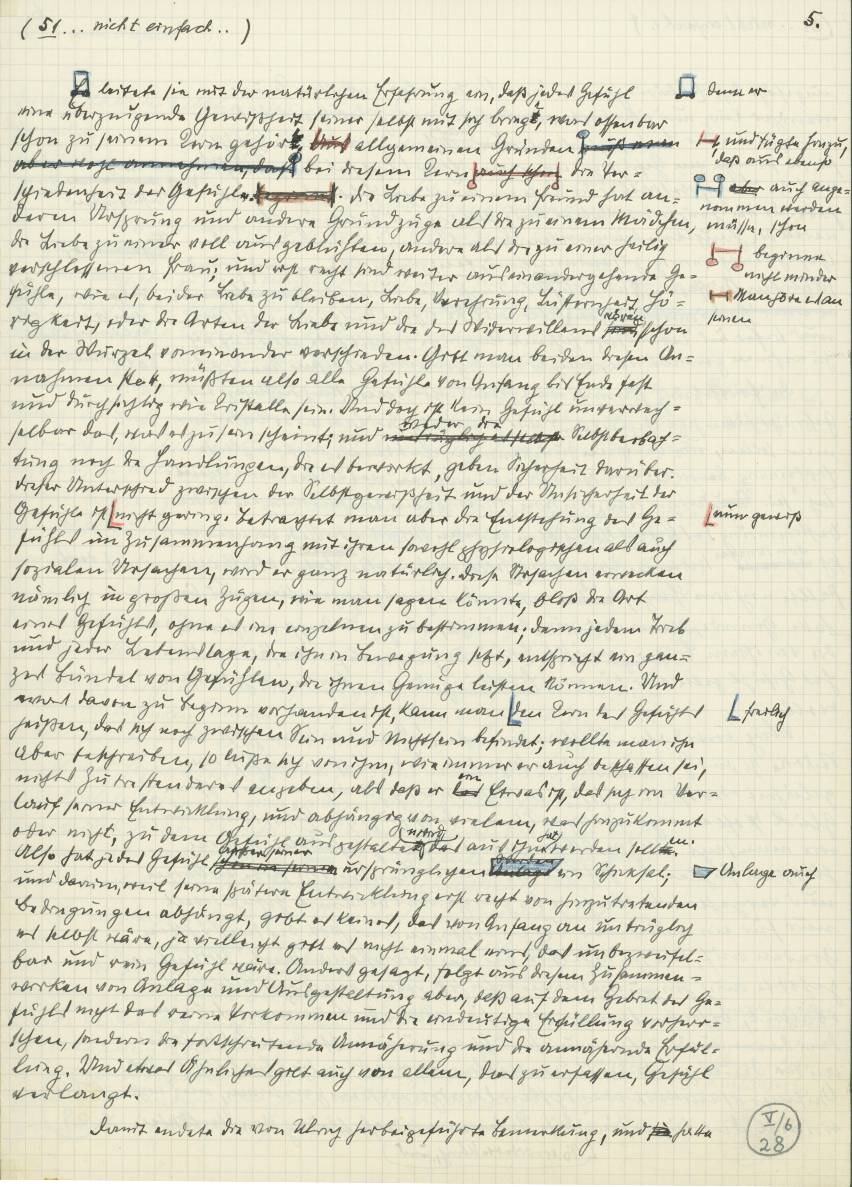 (51... nicht einfach..)
5.
leitete sie mit der natürlichen Erfahrung ein, daß jedes Gefühl
denn er
eine überzeugende Gewißheit seiner selbst mit sich bringt, was offenbar
schon zu seinem Kern gehört, aus allgemeinen Gründen muß man
und fügte hinzu, daß aus ebenso
aber wohl annehmen, daß bei diesem Kern auch schon die Ver-
aber auch ange-
nommen werden
müsse, schon
schiedenheit der Gefühle beginnt. die Liebe zu einem Freund hat an-
deren Ursprung und andere Grundzüge als die zu einem Mädchen,
die Liebe zu einer voll ausgeblühten, andere als die zu einer heilig
beginne
nicht minder
verschlossenen Frau; und erst recht sind weiter auseinandergehende Ge-
fühle, wie es, bei der Liebe zu bleiben, Liebe, Verehrung, Lüsternheit, Hö-
seinen
rigkeit, oder die Arten der Liebe und die des Widerwillens wären schon
in der Wurzel voneinander verschieden. Gibt man beiden diesen An-
nahmen statt, müßten also alle Gefühle von Anfang bis Ende fest
und durchsichtig wie Kristalle sein. Und doch ist kein Gefühl unverwech-
selbar das, was es zu sein scheint; und weder die Selbstbeobach-
tung noch die Handlungen, die es bewirkt, geben Sicherheit darüber.
dieser Unterschied zwischen der Selbstgewißheit und der Unsicherheit der
Gefühle ist nicht gering. Betrachtet man aber die Entstehung des Ge-
nun gewiß
fühls im Zusammenhang mit ihren sowohl physiologischen als auch
sozialen Ursachen, wird er ganz natürlich. diese Ursachen erwecken
nämlich in großen Zügen, wie man sagen könnte, bloß die Art
eines Gefühls, ohne es im einzelnen zu bestimmen; denn jedem Trieb
und jeder Lebenslage, die ihn in Bewegung setzt, entspricht ein gan-
zes Bündel von Gefühlen, die ihnen Genüge leisten können. Und
was davon zu Beginn vorhanden ist, kann man den Kern des Gefühls
freilich
heißen, das sich noch zwischen Sein und Nichtsein befindet; wollte man ihn
aber beschreiben, so ließe sich von ihm, wie immer er auch beschaffen sei,
nichts Zutreffenderes angeben, als daß er ein Etwas ist, das sich im Ver-
lauf seiner Entwicklung, und abhängig von vielem, was hinzukommt
oder nicht, zu dem Gefühl ausgestalten wird, das aus ihm hat werden sollen.
Also hat jedes Gefühl außer seiner ursprünglichen Anlage ein Schicksal;
Anlage auch
und darum, weil seine spätere Entwicklung erst recht von hinzutretenden
Bedingungen abhängt, gibt es keines, das von Anfang an untrüglich
es selbst wäre, ja vielleicht gibt es nicht einmal eines, das unbezweifel-
bar und rein Gefühl wäre. Anders gesagt, folgt aus diesem Zusammen-
wirken von Anlage und Ausgestaltung aber, daß auf dem Gebiet des Ge-
fühls nicht das reine Vorkommen und die eindeutige Erfüllung vorherr-
schen, sondern die fortschreitende Annäherung und die annähernde Erfül-
lung. Und etwas Ähnliches gilt auch von allem, das zu erfassen, Gefühl
verlangt.
damit endete die von Ulrich herbeigeführte Bemerkung, und sie hatte
V/6
28